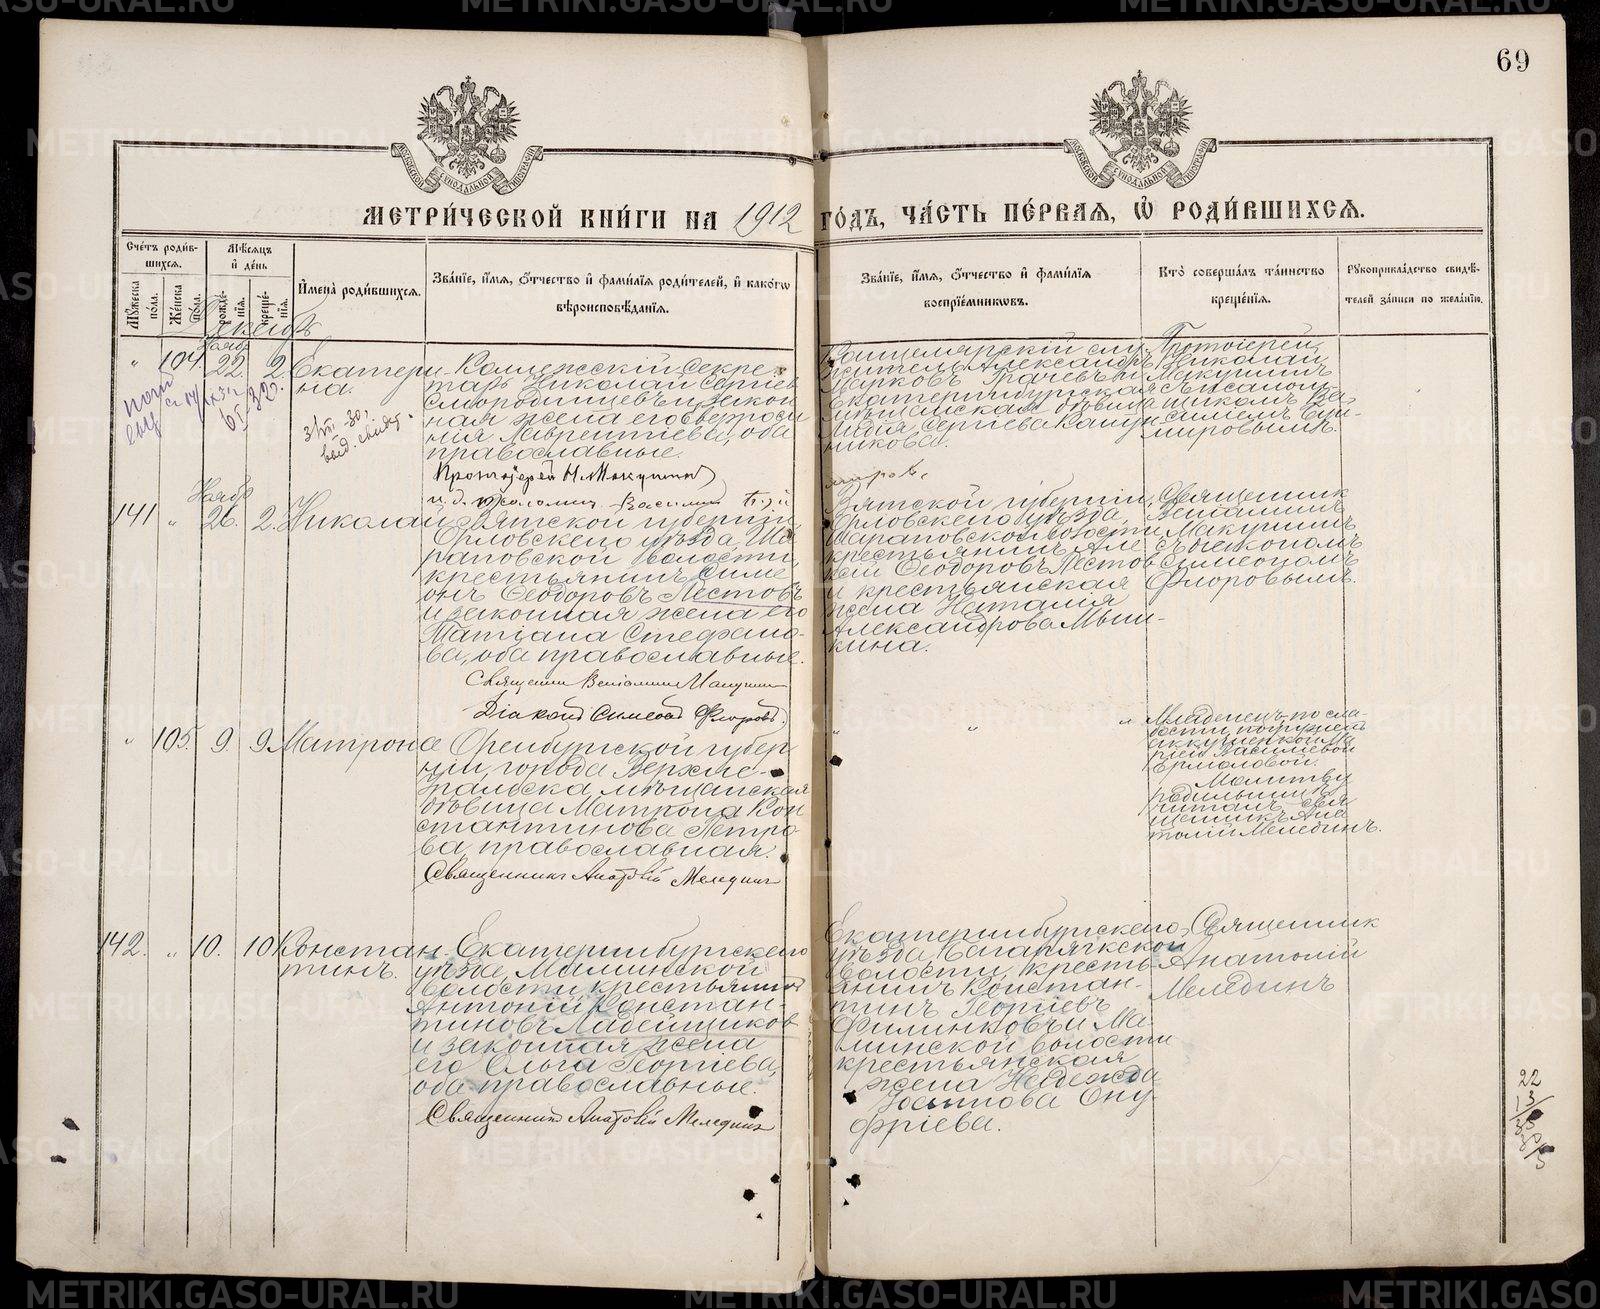 69
МЕТРИ́ЧЕСКОЙ КНИ́ГИ НА 1912 ГО́ДЪ, ЧА́СТЬ ПЕ́РВАЯ, Ѡ РОДИ́ВШИХСЯ.
Сче́тъ роди́в-
шихся.
Мѣ́сяцъ
и҆ де́нь
Му́жеска
по́ла.
Же́нска
по́ла.
рожде́-
нія.
креще́-
нія.
И҆мена̀ роди́вшихся.
Зва́ніе, и҆́мя, ѻ҆́тчество и҆ фами́лія роди́телей, и҆ како́гѡ
вѣроисповѣ́данія.
Зва́ніе, и҆́мя, ѻ҆́тчество и҆ фами́лія
воспріе́мниковъ.
Кто̀ соверша́лъ та́инство
креще́нія.
Рукоприкла́дство свидѣ́-
телей за́писи по жела́нію.
Декабрь
Ноябр
" 104. 22. 2. Екатери
на.
Коллежскій Секре-
тарь Николай Сергіев
Смородинцевъ и закон
ная жена его Евфроси
нія Лаврентіева, оба
православные.
Протоіерей Н. Макушин
и. д. псаломщ. Василій
Канцелярскій слу-
житель Александръ
Марковъ Грачевъ и
Екатеринбургская
мѣщанская дѣвица
Лидія Сергіева Калин
никова.
Протоіерей
Николай
Макушинъ
съ псалом-
щикомъ Ва-
силіемъ Тци-
мировымъ.
Ноябр
141 " 26. 2. Николай
Вятской губерніи,
Орловскаго уѣзда, Ша
раповской волости,
крестьянинъ Симе
онъ Ѳеодоровъ Лестовъ
и законная жена его
Татіана Стефано-
ва, оба православные.
Священник Веніамин Макушин
Діаконъ Симеонъ Флоровъ.
Вятской губерніи,
Орловскаго уѣзда,
Шараповской волости
крестьянинъ Але
ксѣй Ѳеодоровъ Лестов
и крестьянская
жена Наталія
Александрова Мыш-
кина.
Священник
Веніаминъ
Макушинъ
съ діакономъ
Симеономъ
Флоровымъ.
" 105. 9. 9. Матрона
Оренбургской губер
ніи, города Верхне-
уральска мѣщанская
дѣвица Матрона Кон
стантинова Петро-
ва, православная.
Священникъ Анатолій Меледин
" " "
Младенецъ по сла-
бости, погруженъ
акушеркой Ма
ріей Васильевой
Ермоловой.
Молитву
родильницѣ
читалъ свя
щенникъ Ана
толій Мелединъ.
142. " 10. 10 Констан-
тинъ.
Екатеринбургскаго
уѣзда, Маминской
волости, крестьянин
Антоній Констан-
тиновъ Ладейщиков
и законная жена
его Ольга Георгіева,
оба православные.
Священникъ Анатолій Меледин
Екатеринбургскаго
уѣзда, Багарякской
волости, кресть-
янинъ Констан-
тинъ Георгіевъ
Филинковъ и Ма-
минской волости
крестьянская
жена Надежда
Іосипова Ону-
фріева.
Священник
Анатолій
Мелединъ
22
13
35